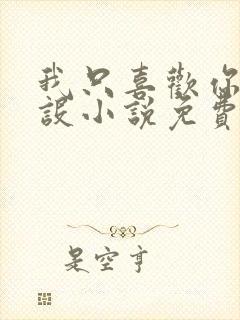 我只喜歡你
設小說免費
是空亨